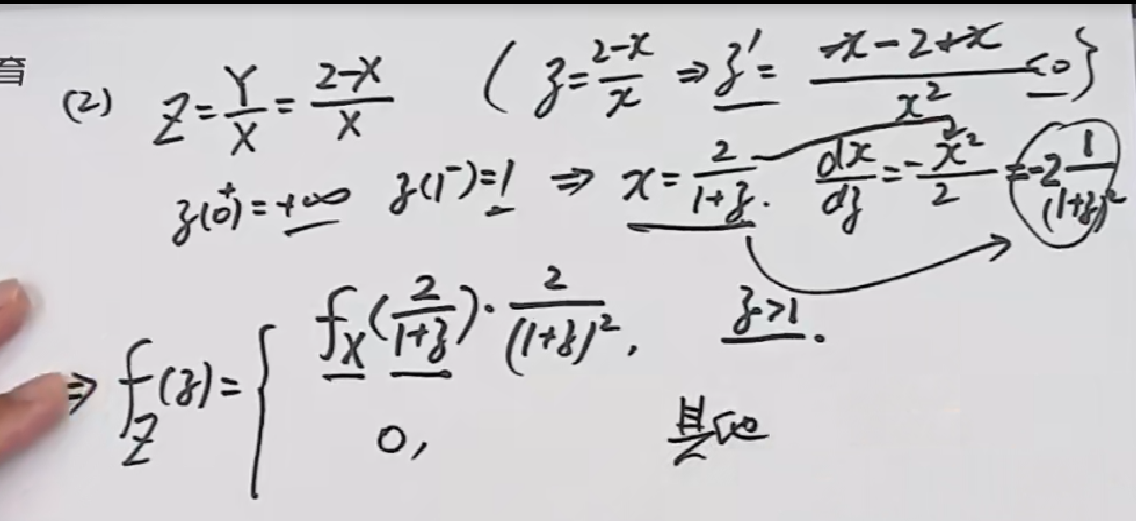 育
(2) Z=Y/X=(2-X)/X ( z=(2-x)/x ⇒ z'=(-x-2+x)/x² <0 }
z(0⁺)=+∞ z(1⁻)=1 ⇒ x=2/(1+z). dx/dz=-x²/2=-2 1/(1+z)²
⇒ f_Z(z)={ f_X(2/(1+z))·2/(1+z)², z>1.
0, 其他